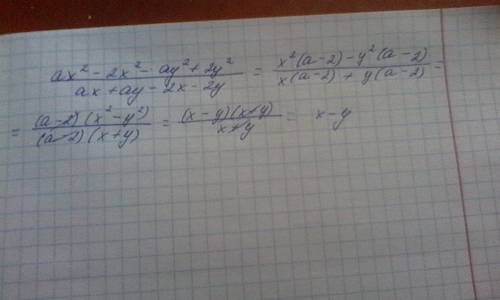 (ax² - 2x² - ay² + 2y²)/(ax + ay - 2x - 2y) = (x²(a-2) - y²(a-2))/(x(a-2) + y(a-2)) =
= ((a-2)(x² - y²))/((a-2)(x+y)) = ((x-y)(x+y))/(x+y) = x-y